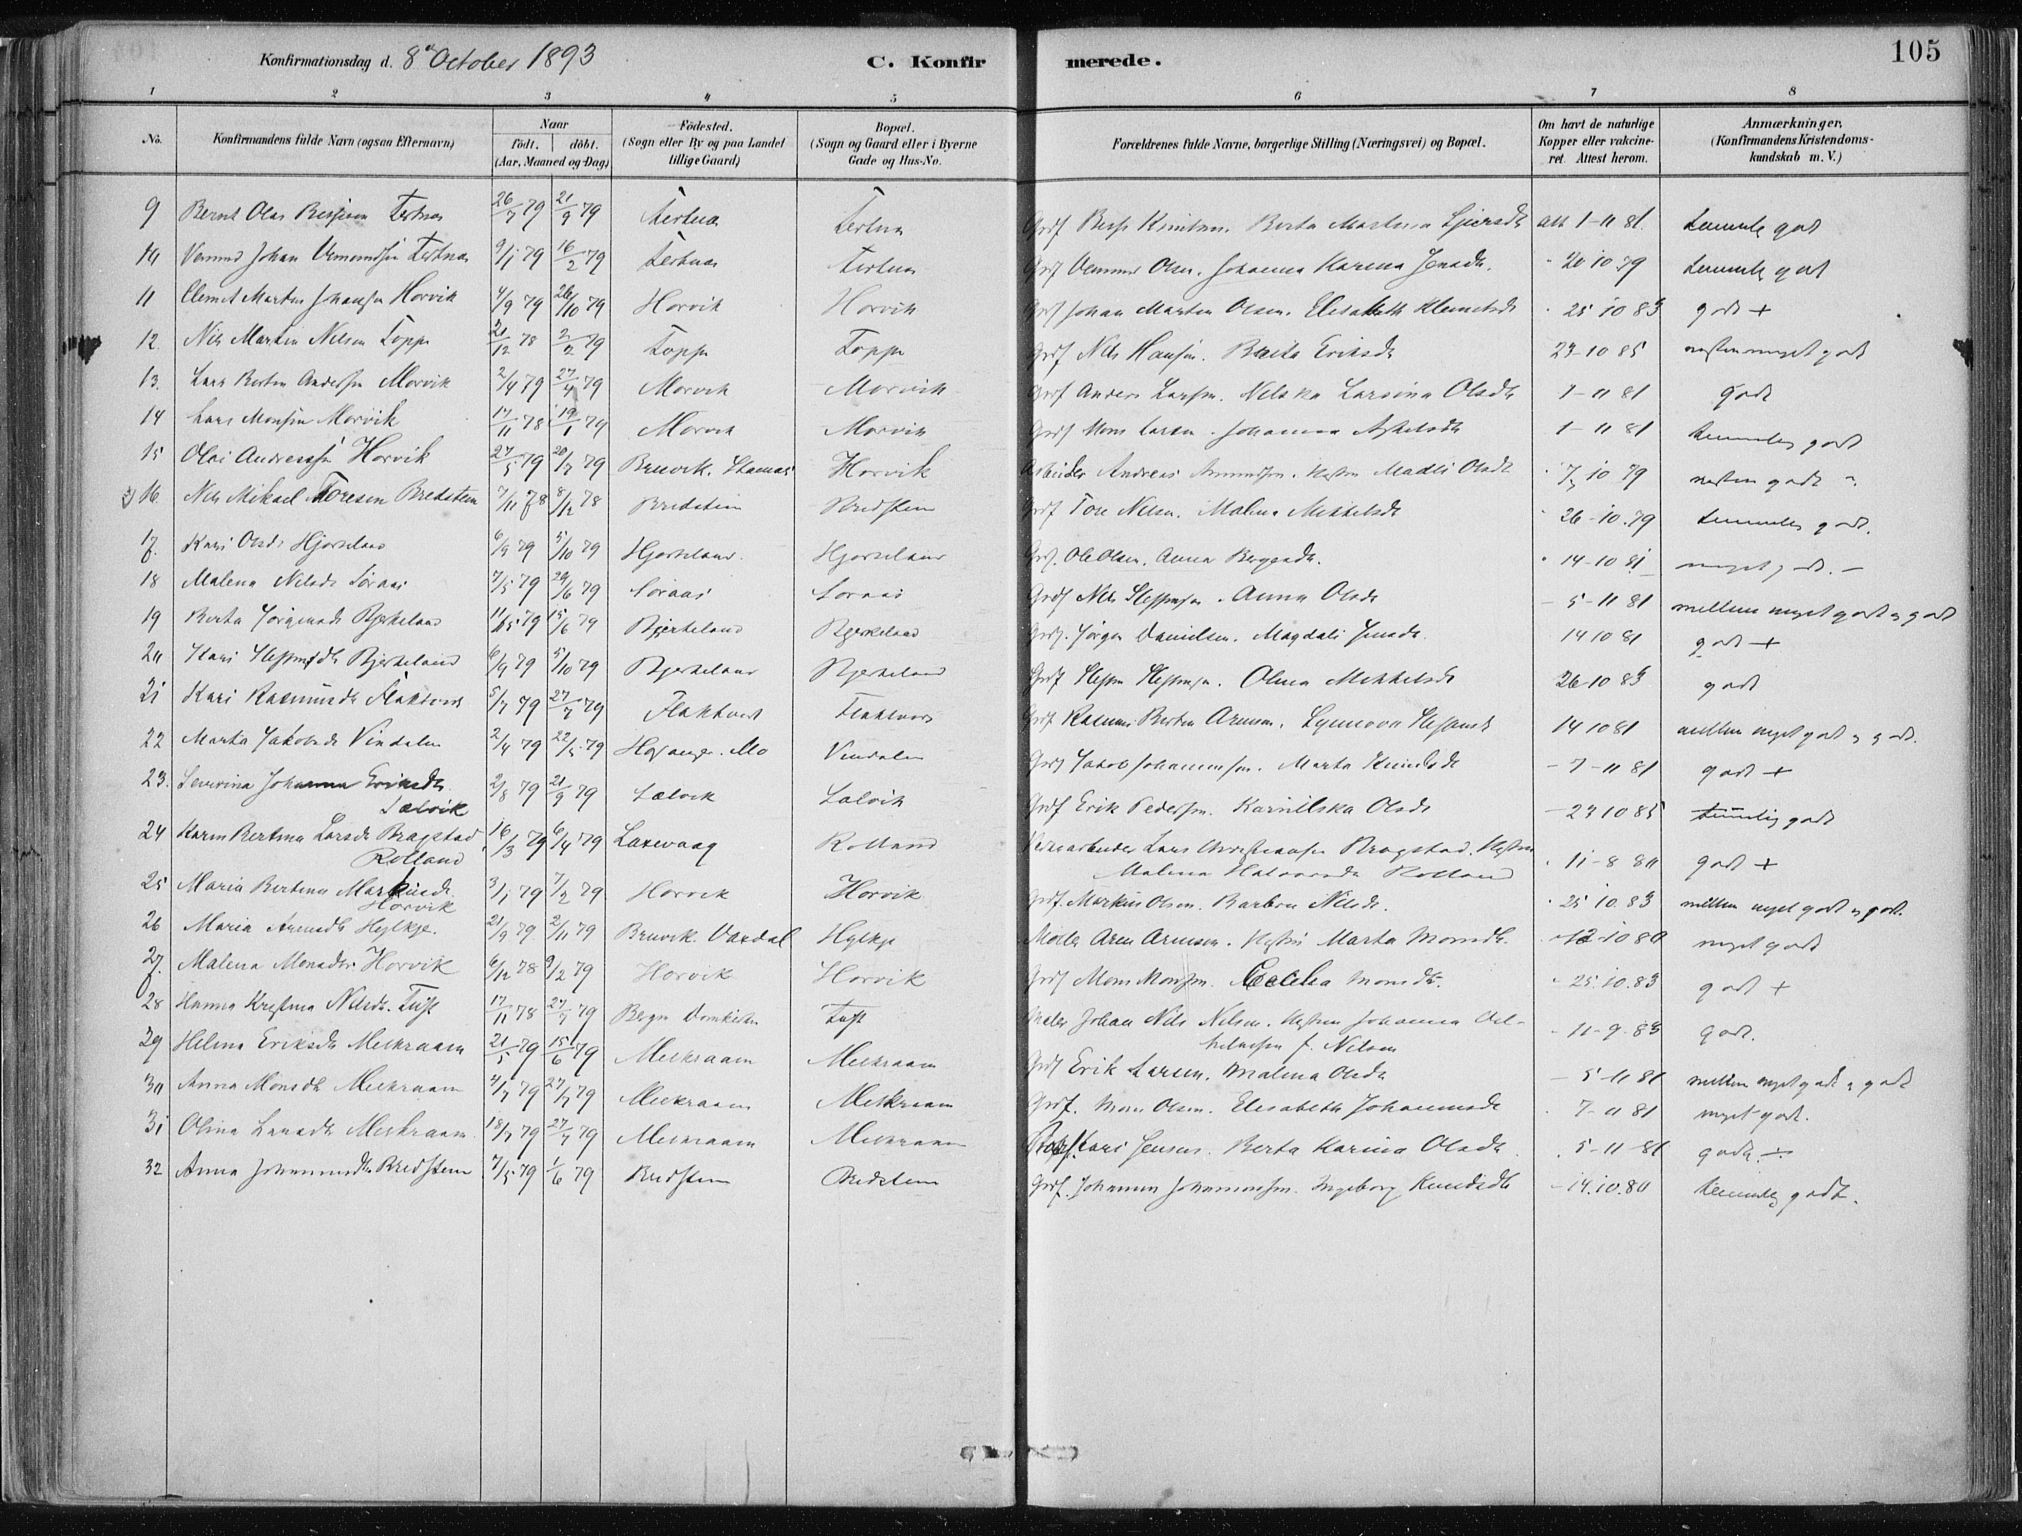 Konfirmationsdag d. 8de October 1893 C. Konfirmerede. 105
1 2 3 4 5 6 7 8
No. Konfirmandens fulde Navn (ogsaa Efternavn) Naar födt. döbt. (Aar, Maaned og Dag) Födested. (Sogn eller By og paa Landet tillige Gaard) Bopæl. (Sogn og Gaard eller i Byerne Gade og Hus-No. Forældrenes fulde Navne, borgerlige Stilling (Næringsvei) og Bopæl. Om havt de naturlige Kopper eller vakcineret. Attest herom. Anmærkninger. (Konfirmandens Kristendomskundskab m. V.)
9 Bernt Olai Tertnæs 26/7 79 21/9 79 Tertnæs Tertnæs Grdf Knutsen. Berta att 1-11 81. temmelig godt
10 Johan Tertnæs 9/1 79 16/2 79 Tertnæs Tertnæs Grdf Olsen. Johanna Karina 20 10 79 temmelig godt
11 Clemet Martin Johansen Horvik 4/9 79 26/10 79 Horvik Horvik Grdf Johan Martin Olsen. Elisabeth Klemetsdt 25 10 83 godt +
12 Nils Martin Nilsen Toppe 21/12 78 2/2 79 Toppe Toppe Grdf Nils Hansen. Berta Eriksdt 23-10 85 næsten meget godt
13. Lars Bertin Andersen Morvik 2/4 79 27/4 79 Morvik Morvik Grdf Anders Larsen. Larsina Olsdt 1-11 81 godt
14 Lars Monsen Morvik 17/11 78 19/1 79 Morvik Morvik Grdf Mons Larsen. Johanna 1-11 81 temmelig godt
15 Olai Andreassen Horvik 27/5 79 20/7 79 Bruvik. Stamnes Horvik Arbeider Andreas Hustru Madli Olsdt 7/10 79 næsten godt
16. Nils Mikael Toresen Bredsten 7/11 78 8/12 78 Bredsten Bredsten Grdf Tore Nilsen. Malina Mikkelsdt 26-10.79 temmelig godt.
17. Kari Olsdt Hjorteland 6/9 79 5/10 79 Hjorteland Hjorteland Grdf. Ole Olsen. Anna 14-10 81 meget godt. -
18 Malena Nilsdt Søraas 7/5 79 29/6 79 Søraas Søraas Grdf Nils Steffensen. Anna Olsdt 5-11 81 mellem meget godt og godt
19 Berta Jørgensdt Bjerkeland 11/5 79 15/6 79 Bjerkeland Bjerkeland Grdf. Jørgen Danielsen. Magdali 14 10 81 godt +
20 Kari Steffensdt Bjerkeland 6/9 79 5/10 79 Bjerkeland Bjerkeland Grdf Steffen Steffensen. Olina Mikkelsdt 26-10 83 godt
21 Kari Rasmusdt Flaktveit 5/7 79 27/7 79 Flaktveit Flaktveit Grdf Rasmus Bertin Arnesen. Synnøva Steffensdt 14 10 81 mellem meget godt og godt.
22 Marta Jakobsdt Vindalen 2/4 79 22/5 79 Mo Vindalen Grdf Jakob Johannessen. Marta Knutsdt 7-11 81 godt +
23. Severina Johanna Eriksdt Salvik 2/8 79 21/9 79 Salvik Salvik Grdf Erik Pedersen. Karnilska Olsdt 23 10 85 temmelig godt
24 Karen Bertina Larsdt Bragstad Rolland 16/3 79 6/4 79 Laxevaag Rolland Lars Christiansen Bragstad. Hustru Malena Rolland 11-8 80 godt +
25 Maria Bertina Markusdt Horvik 3/1 79 7/2 79 Horvik Horvik Grdf. Markus Olsen. Barbra Nilsdt. 25 10. 83 mellem meget godt og godt.
26 Maria Arnesdt Hylkje. 21/9 79 2/11 79 Bruvik. Vaxdal Hylkje Møller Arne Arnesen. Hustru Marta Monsdt. 12-10 80 meget godt
27. Malena Monsdtr Horvik 6/12 78 9/2 79 Horvik Horvik Grdf Mons Monsen. Cecilia Monsdtr. 25.10.83 godt +
28 Hanna Kristina Nilsdt. Tuft 17/11 78 27/7 79 Bergen Domkirken Tuft Maler Johan Nils Nilsen. Hustru Johanna f. Nilsen 11-9-83 godt.
29 Helena Eriksdt Melkraaen 21/5 79 15/6 79 Melkraaen Melkraaen Grdf Erik Larsen. Malena Olsdt 5-11 81 mellem meget godt og godt
30 Anna Monsdt Melkraaen 4/7 79 27/7 79 Melkraaen Melkraaen Grdf. Mons Olsen. Elisabeth Johannesdt 7-11 81 meget godt.
31 Olina Larsdt Melkraaen. 18/7 79 27/7 79 Melkraaen Melkraaen Lars Jensen. Berta Karina Olsdt 5-11-81 godt ÷
32 Anna Johannesdtr Bredsten 7/5 79 1/6 79 Bredsten Bredsten Grdf. Johannes Johannessen. Ingeborg Knutsdt 14.10.80 temmelig godt.